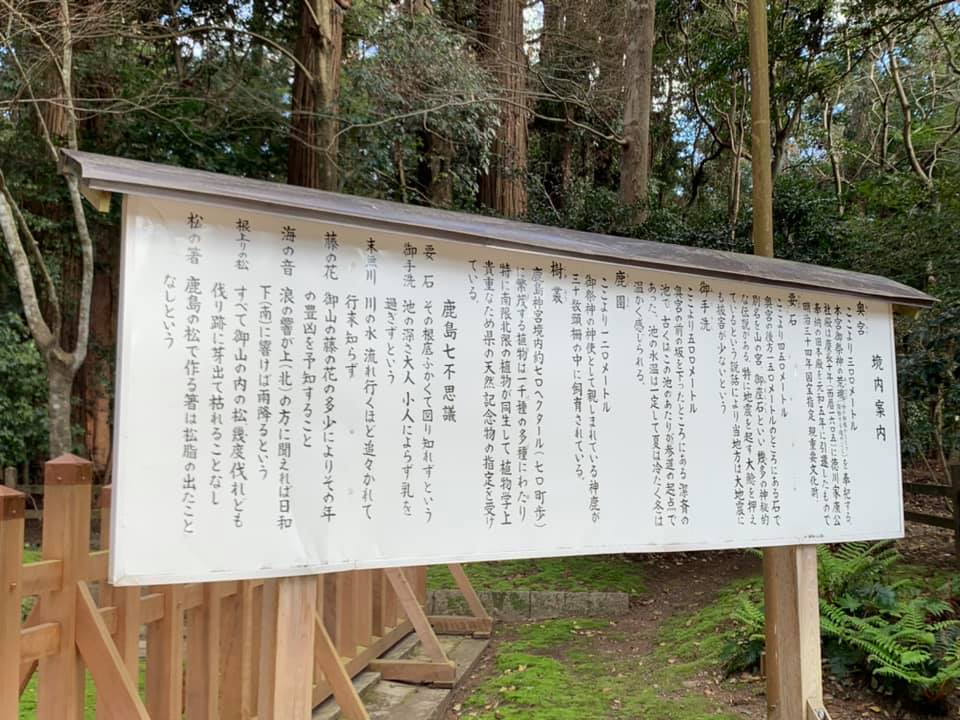 境内案内
奥宮
ここより三〇〇メートル
本宮御祭神の荒魂を奉祀する。
社殿は慶長十年(西暦一六〇五)に徳川家康公
奉納の旧本殿を元和五年に引遷したもので
明治三十四年国宝指定 現重要文化財。
要石
ここより四五〇メートル
奥宮の後方一五〇メートルのところにある石で
別名を山の宮 御座石といい幾多の神秘的
な伝説がある。特に地震を起す大鯰を押え
ているという説話により当地方は大地震に
も被害が少ないという
御手洗
ここより五〇〇メートル
奥宮の前の坂を下ったところにある 潔斎の
池で、古くはこの池のあたりが参道の起点で
あった。池の水温は一定して夏は冷たく冬は
温かく感じられる。
鹿園
ここより一二〇メートル
御祭神の神使として親しまれている神鹿が
三十数頭柵の中に飼育されている。
樹叢
鹿島神宮境内約七〇ヘクタール(七〇町歩)
に繁茂する植物は一千種の多種にわたり
特に南限北限の植物が同生して植物学上
貴重なため県の天然記念物の指定を受け
ている。
鹿島七不思議
要石 その根底ふかくて図り知れずという
御手洗 池の深さ大人小人によらず乳を
過ぎずという
末無川 川の水 流れ行くほど追々かれて
行末知らず
藤の花 御山の藤の花の多少によりその年
の豊凶を予知すること
海の音 浪の響が上(北)の方に聞えれば日和
下(南)に響けば雨降るという
根上りの松 すべて御山の内の松幾度伐れども
伐り跡に芽出て枯れることなし
松の箸 鹿島の松で作る箸は松脂の出たこと
なしという